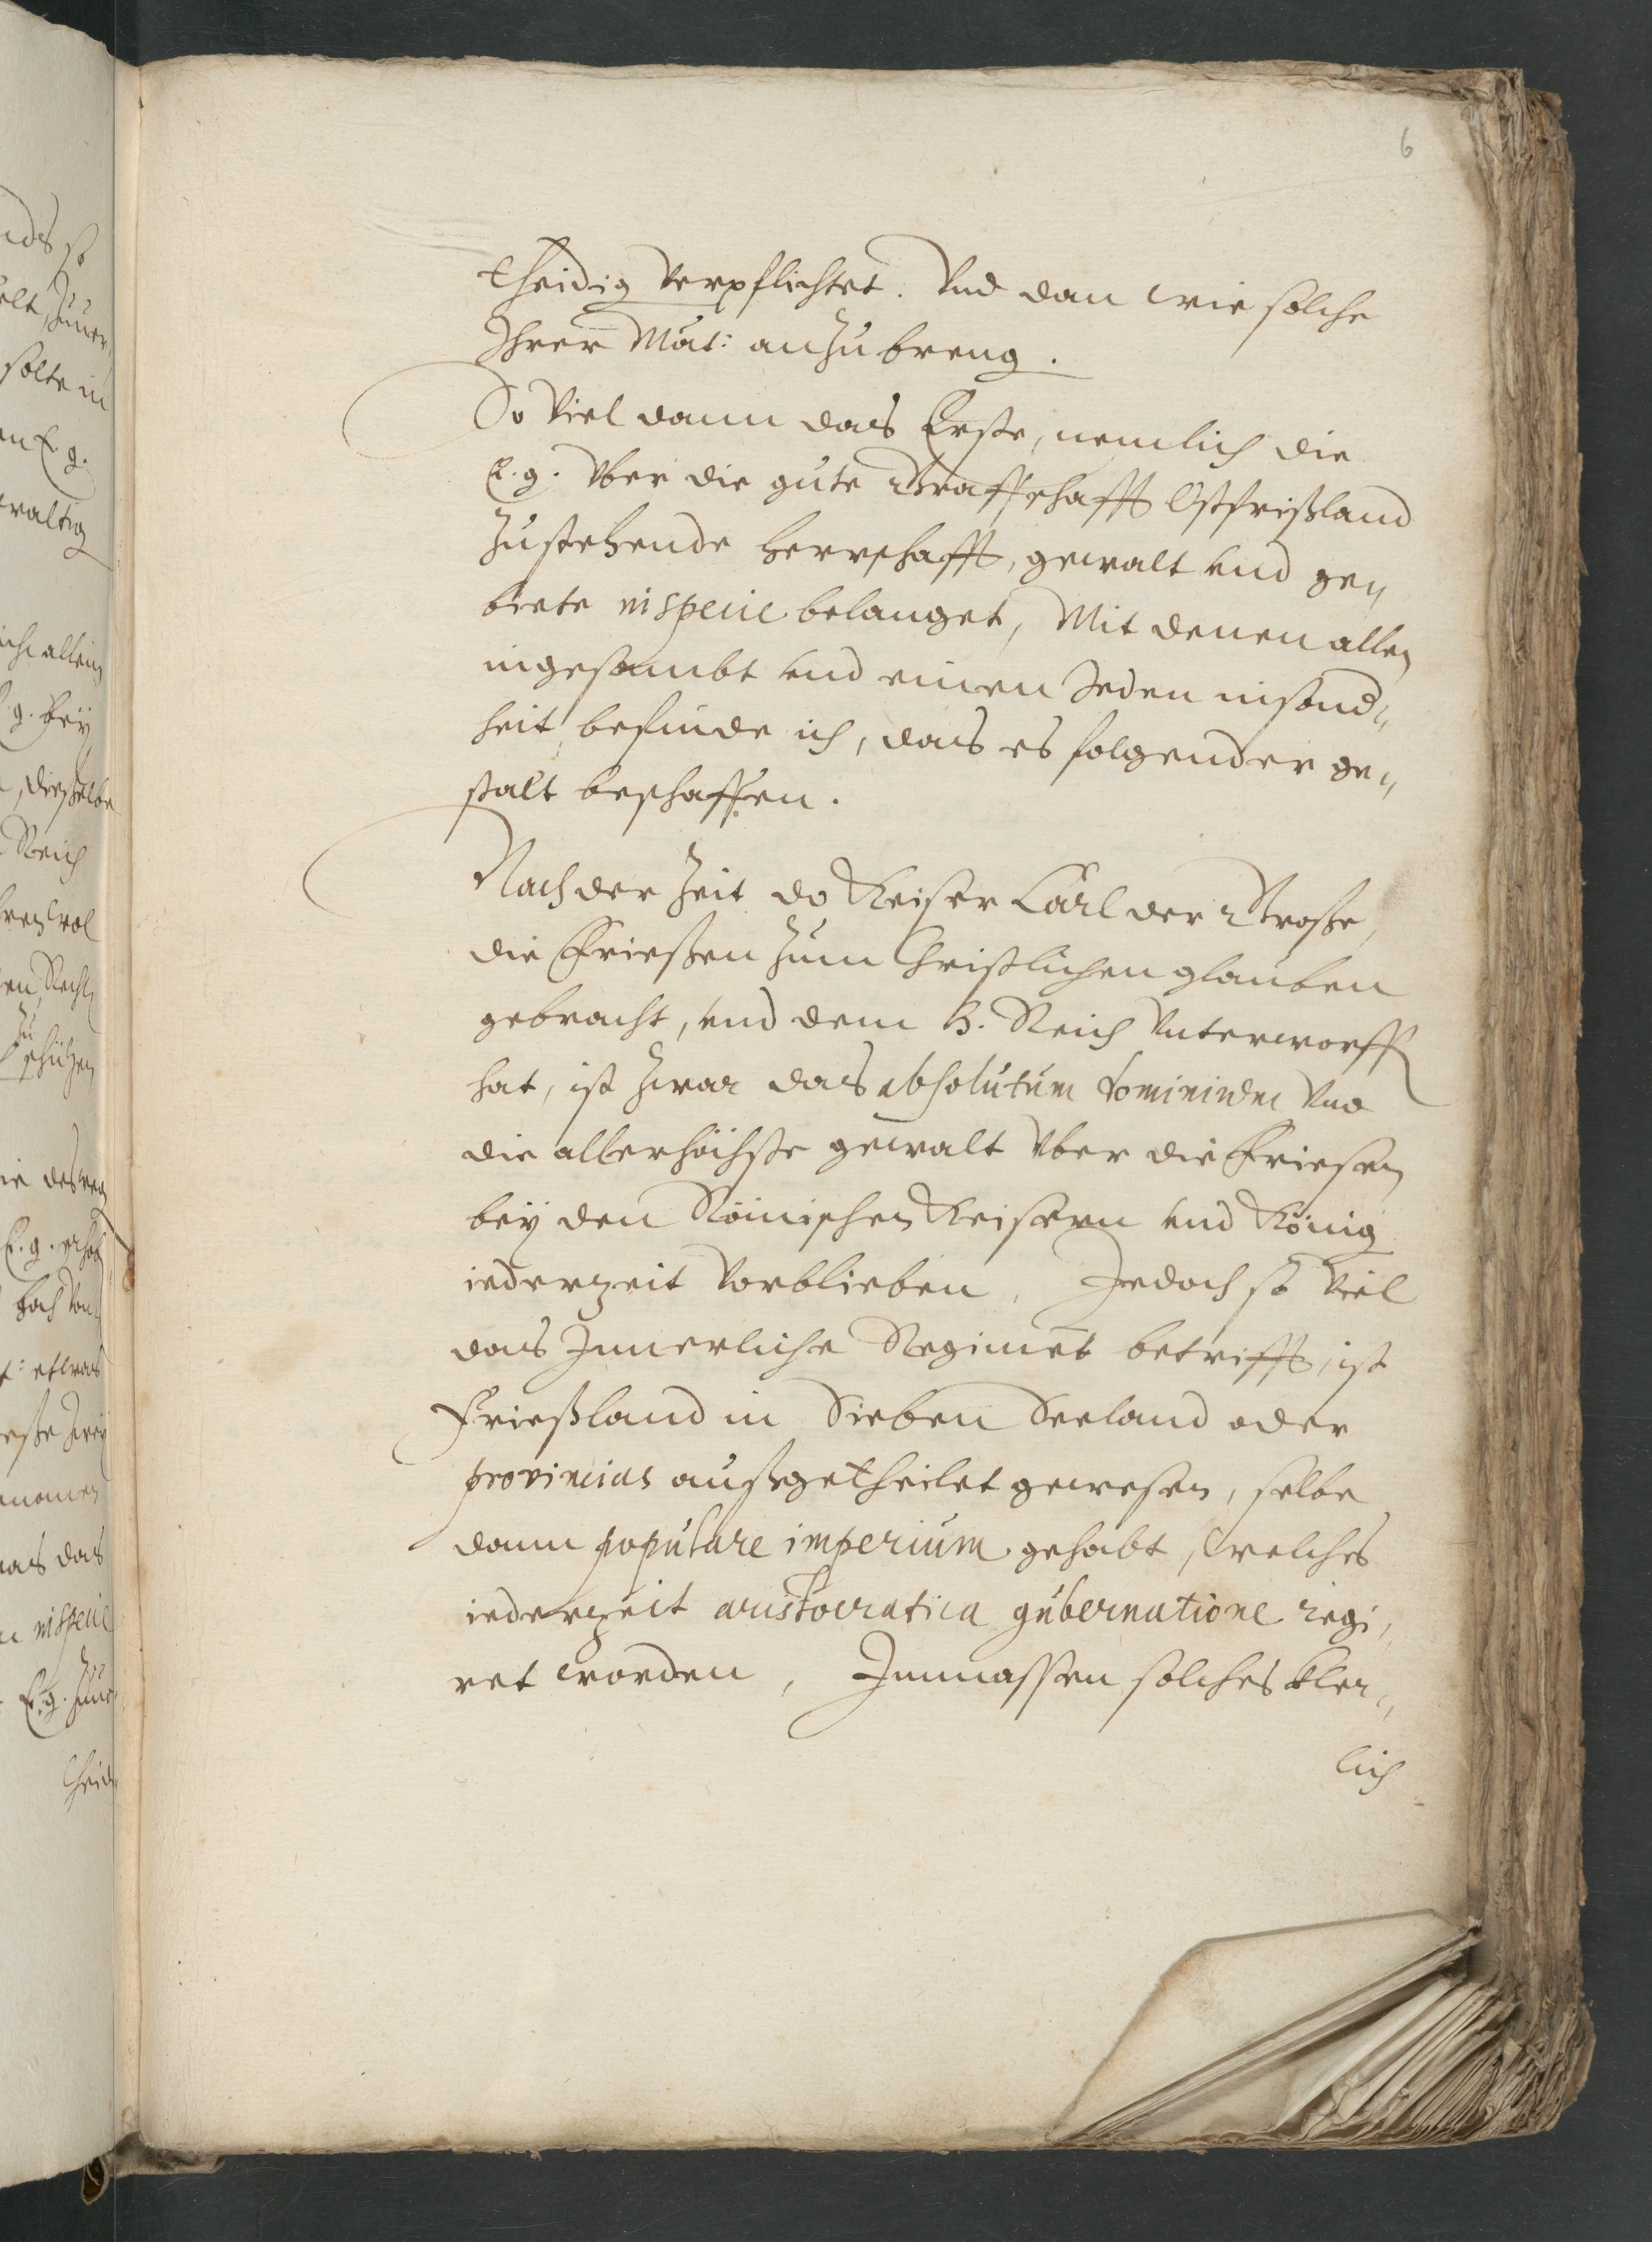 6
theidig verpflichtet. Vnd dan wie solche
Ihrer Mat: anzubreng.
So viel dann das Erste, nemlich die
E. g. vber die gute Graffschafft Ostfrißland
zustehende herrschafft, gewalt vnd ge„
biete in specie belanget, Mit denen allen
ingesambt vnd einen Jeden insond„
heit befinde ich, das es folgender ge„
stalt beschaffen.
Nach der Zeit do Keiser Carl der Große,
die Frießen zum Christlichen glauben
gebracht, vnd dem H. Reich vnterworff
hat, ist zwar das absolutum dominium vnd
die allerhöchste gewalt vber die Friesen
bey den Römischen Keisern vnd König
iederzeit vorblieben, Jedoch so viel
das Innerliche Regimet betrifft, ist
Frießland in Sieben Seeland oder
provincias außgetheilet gewesen, selbe
dann populare imperium gehabt, welches
iederzeit aristocratica gubernatione regi„
ret worden, Inmassen solches kler„
lich